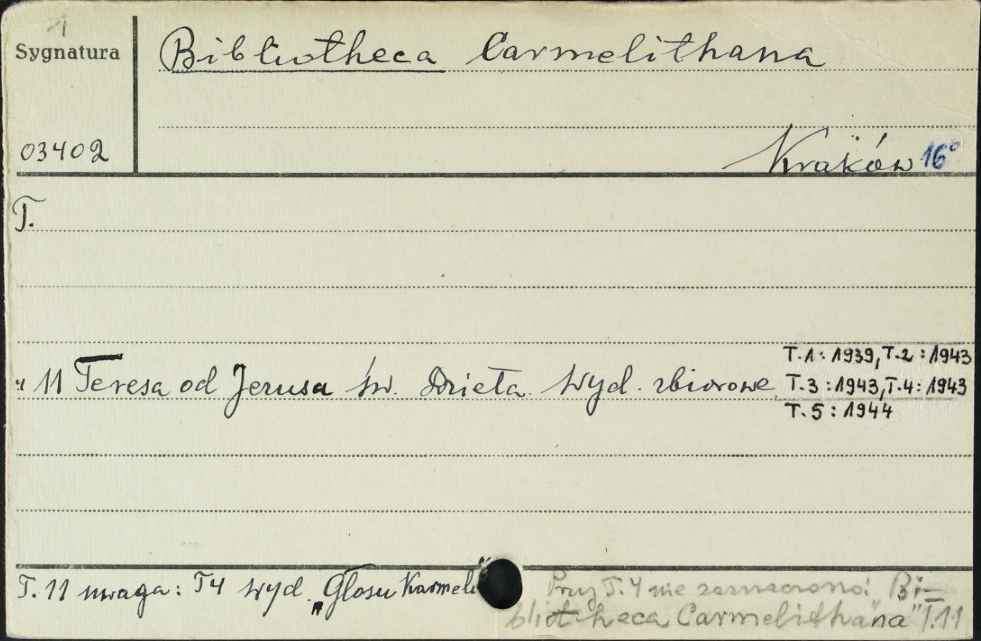 1
Sygnatura
Bibliotheca Carmelithana
03402
Kraków 16°
T.
" 11 Teresa od Jerusa św. Dzieła. Wyd. zbiorowe
T.1: 1939, T.2: 1943
T.3: 1943, T.4: 1943
T.5: 1944
T. 11 uwaga: T4 wyd. „Głosu Karmelu"
Przy T. 4 nie zaznaczono: Bi-
bliotheca Carmelithana" T. 11